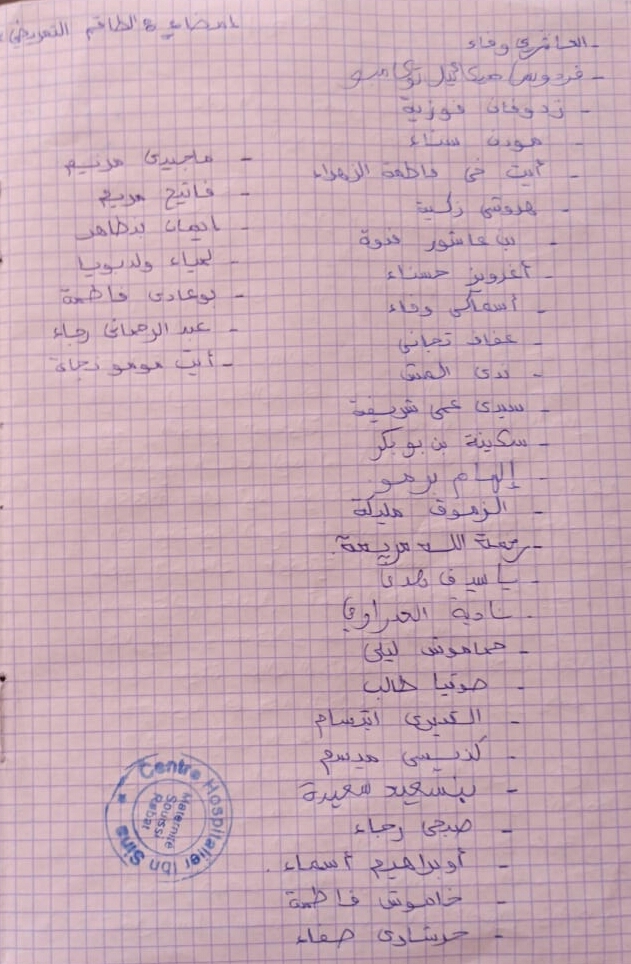 امضاء الطاقم التمريضي
- الحافري وفاء
- فردوس
- زدوفان فوزية
مودن سناء
- أيت خي فاطمة الزهراء
- هروشي زكية
- بن عاشور قدوة
- أغرويز حسناء
- أسماكي وفاء
- عفاف تجاني
- ندى المتقي
- سيدي عمي شريفة
- سكينة بن بوبكر
- إلهام برمو
- الزموق مليكة
- رحمة الله مريمة
- ياسيف هدى
- نادية الحراوي
- حماموش ليلى
- صوتيا طالب
- القديري ابتسام
- كنيسي ميسم
- بنسعيد سعيدة
- صبحي رجاء
- أوبراهيم أسماء
- خاموش فاطمة
- حرشادي صفاء
- ماجيدي مريم
- فاتيح مريم
- ايمان بدطاهر
- لمياء ولدبويا
- بوعادي فاطمة
- عبد الرحماني رجاء
- أيت مومو نجاة
Centre Hospitalier Ibn Sina
Maternité
Souissi
Rabat